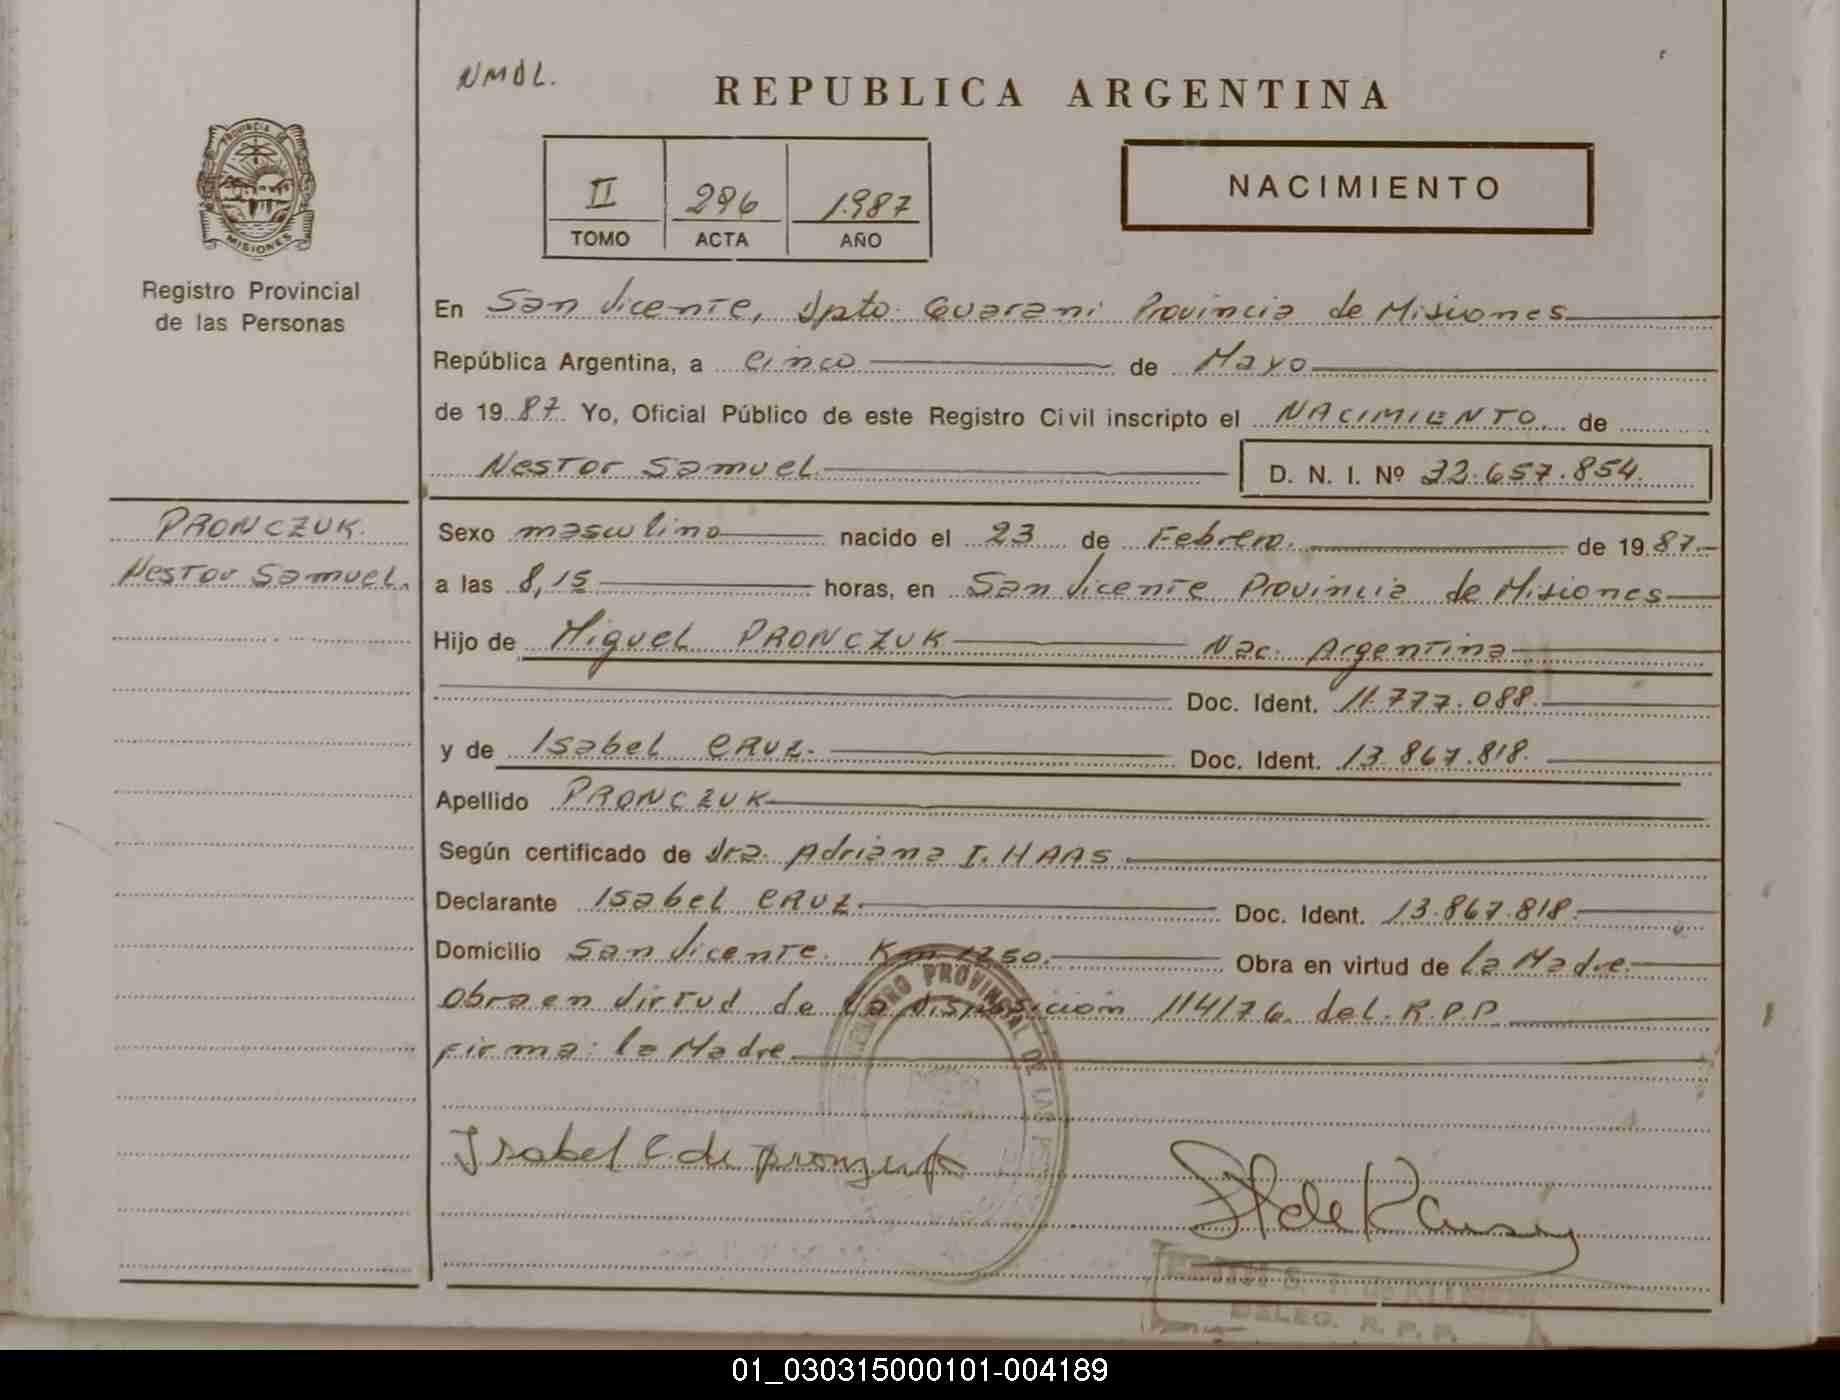 NMDL.
REPUBLICA ARGENTINA
PROVINCIA DE
MISIONES
Registro Provincial
de las Personas
II 296 1.987
TOMO ACTA AÑO
NACIMIENTO
En San Vicente, Dpto. Guarani Provincia de Misiones
República Argentina, a cinco de Mayo
de 19 87 Yo, Oficial Público de este Registro Civil inscripto el NACIMIENTO de
Nestor Samuel D. N. I. Nº 32.657.854.
PRONCZUK
Nestor Samuel.
Sexo masculino nacido el 23 de Febrero. de 19 87.
a las 8,15 horas, en San Vicente Provincia de Misiones
Hijo de Miguel PRONCZUK Nac. Argentina
Doc. Ident. 11.777.088.
y de Isabel CRUZ. Doc. Ident. 13.867.818.
Apellido PRONCZUK
Según certificado de Dra. Adriana I. HAAS.
Declarante Isabel CRUZ. Doc. Ident. 13.867.818.
Domicilio San Vicente. Km 1250. Obra en virtud de La Madre.
Obra en Virtud de La Disposicion 114/76. del. R.P.P
Firma: la Madre
REGISTRO PROVINCIAL DE LAS
Isabel C de pronzuk
DELEG. R. P. P.
01_030315000101-004189